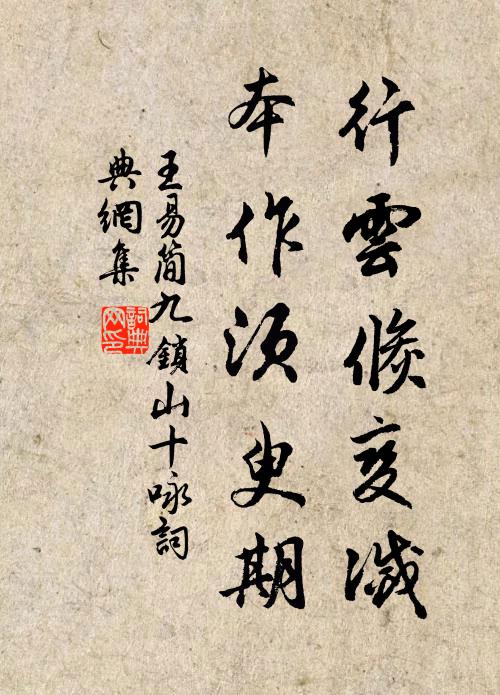 行雲倐变滅
本作須臾期
王易简九鎖山十咏詞
典網集
詞典网印